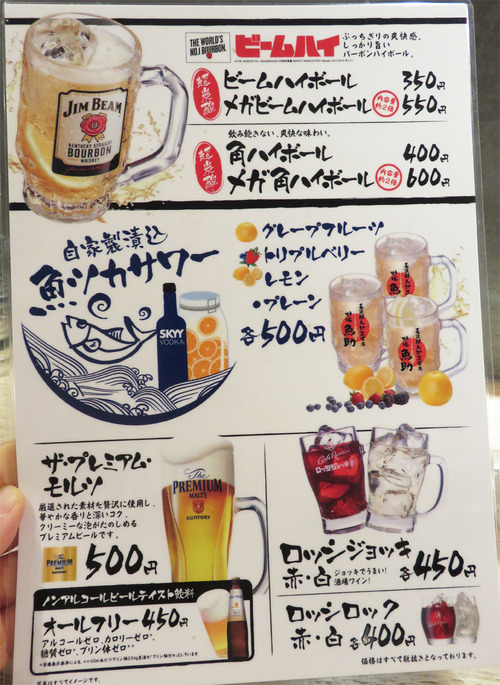 THE WORLD'S
No.1 BOURBON.
ビームハイ
ぶっちぎりの爽快感。
しっかり旨い
バーボンハイボール。
JIM BEAM
KENTUCKY STRAIGHT
BOURBON
WHISKEY
超炭酸
ビームハイボール 350円
メガビームハイボール 内容量約2倍 550円
飲み飽きない、爽快な味わい。
超炭酸
角ハイボール 400円
メガ角ハイボール 内容量約2倍 600円
自家製漬込
魚ツカサワー
SKYY
VODKA
グレープフルーツ
トリプルベリー
レモン
・プレーン
各500円
魚助
魚助
魚助
ザ・プレミアム・
モルツ
厳選された素材を贅沢に使用し、
華やかな香りと深いコク。
クリーミーな泡がたのしめる
プレミアムビールです。
The
PREMIUM
MALT'S
500円
The
PREMIUM
MALT'S
SUNTORY
ノンアルコールビールテイスト飲料
オールフリー 450円
アルコールゼロ、カロリーゼロ*、
糖質ゼロ*、プリン体ゼロ**
※写真はすべてイメージです。
ロッシジョッキ
赤・白
ジョッキでうまい!
酒場ワイン!
各450円
ロッシロック
赤・白 各400円
価格はすべて税抜きとなっております。